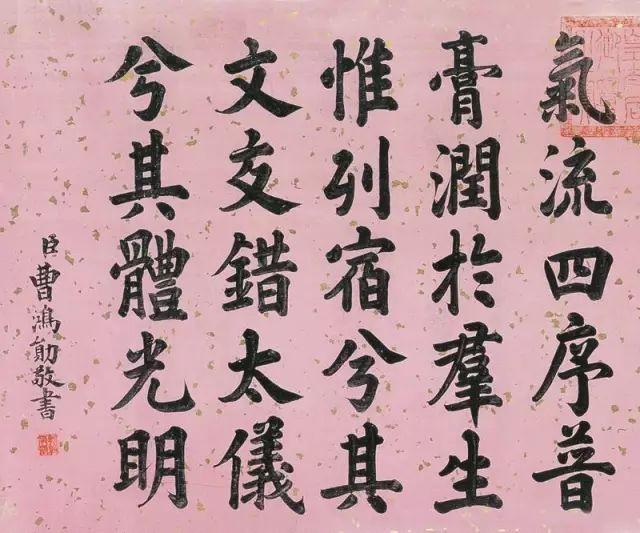 氣流四序普
膏潤於羣生
惟列宿兮其
文交錯太儀
兮其體光明
臣曹鴻勛敬書